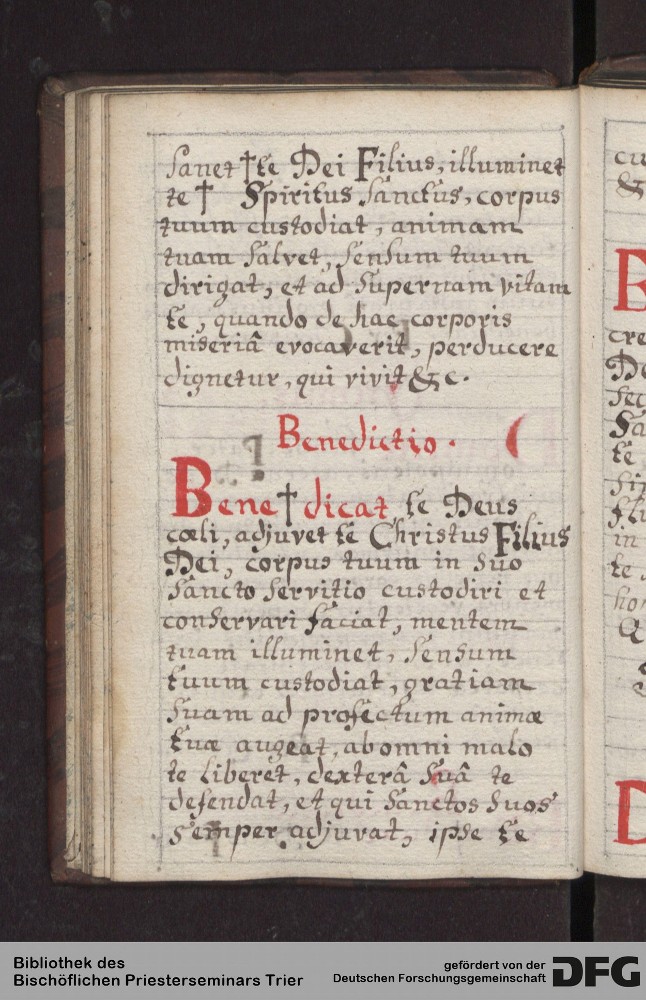 Sanet † te Dei Filius, illuminet
te † Spiritus Sanctus, corpus
tuum custodiat, animam
tuam Salvet, Sensum tuum
dirigat, et ad Supernam vitam
te, quando de hac corporis
miseriâ evocaverit, perducere
dignetur, qui vivit &c.
Benedictio.
Bene†dicat te Deus
cœli, adjuvet te Christus Filius
Dei, corpus tuum in Suo
Sancto Servitio custodiri et
conservari faciat, mentem
tuam illuminet, Sensum
tuum custodiat, gratiam
Suam ad profectum animæ
tuæ augeat, ab omni malo
te liberet, dexterâ Suâ te
defendat, et qui Sanctos Suos
Semper adjuvat, ipse te
cu
&
B
cre
De
Sec
Sa
te
in
te
hon
Q
D
Bibliothek des
Bischöflichen Priesterseminars Trier
gefördert von der
Deutschen Forschungsgemeinschaft
DFG